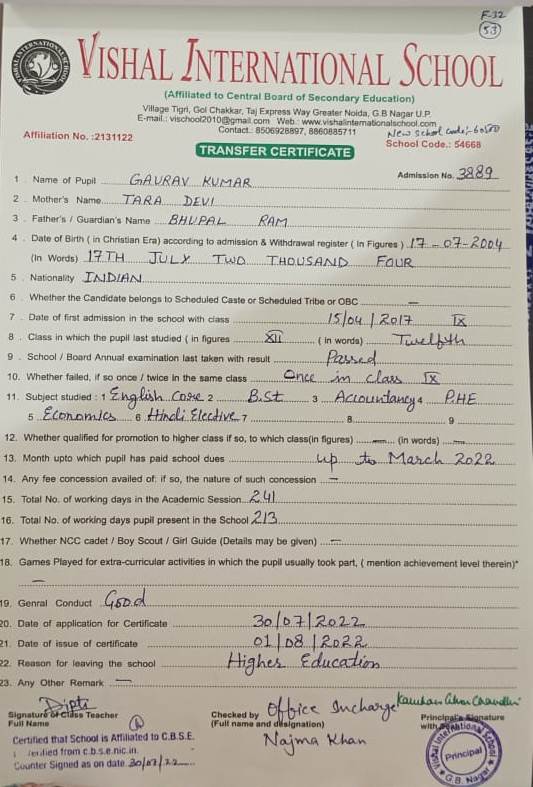 F-32
53
VISHAL INTERNATIONAL SCHOOL
(Affiliated to Central Board of Secondary Education)
Village Tigri, Gol Chakkar, Taj Express Way Greater Noida, G.B Nagar U.P.
E-mail.: vischool2010@gmail.com Web.: www.vishalinternationalschool.com
Contact.: 8506928897, 8860885711
New School Code:- 60500
Affiliation No. :2131122
School Code.: 54668
TRANSFER CERTIFICATE
Admission No. 3889
1 . Name of Pupil GAURAV KUMAR
2 . Mother's Name TARA DEVI
3 . Father's / Guardian's Name BHUPAL RAM
4 . Date of Birth ( in Christian Era) according to admission & Withdrawal register ( In Figures ) 17-07-2004
(In Words) 17TH JULY TWO THOUSAND FOUR
5 . Nationality INDIAN
6 . Whether the Candidate belongs to Scheduled Caste or Scheduled Tribe or OBC —
7 . Date of first admission in the school with class 15/04/2017 IX
8 . Class in which the pupil last studied ( in figures XII ( in words) Twelfth
9 . School / Board Annual examination last taken with result Passed
10. Whether failed, if so once / twice in the same class Once in class IX
11. Subject studied : 1 English Core 2 B.St 3 Accountancy 4 P.HE
5 Economics 6 Hindi Elective 7 8 9
12. Whether qualified for promotion to higher class if so, to which class(in figures) — (in words) —
13. Month upto which pupil has paid school dues up to March 2022
14. Any fee concession availed of: if so, the nature of such concession —
15. Total No. of working days in the Academic Session 241
16. Total No. of working days pupil present in the School 213
17. Whether NCC cadet / Boy Scout / Girl Guide (Details may be given) —
18. Games Played for extra-curricular activities in which the pupil usually took part, ( mention achievement level therein)*
—
19. Genral Conduct Good
20. Date of application for Certificate 30/07/2022
21. Date of issue of certificate 01/08/2022
22. Reason for leaving the school Higher Education
23. Any Other Remark —
Dipti
Signature of Class Teacher
Full Name
Checked by Office Incharge
(Full name and designation)
Najma Khan
Principal's Signature
with
Certified that School is Affiliated to C.B.S.E.
verified from c.b.s.e.nic.in.
Counter Signed as on date 30/07/22
Vishal International School
Principal
G.B. Nagar